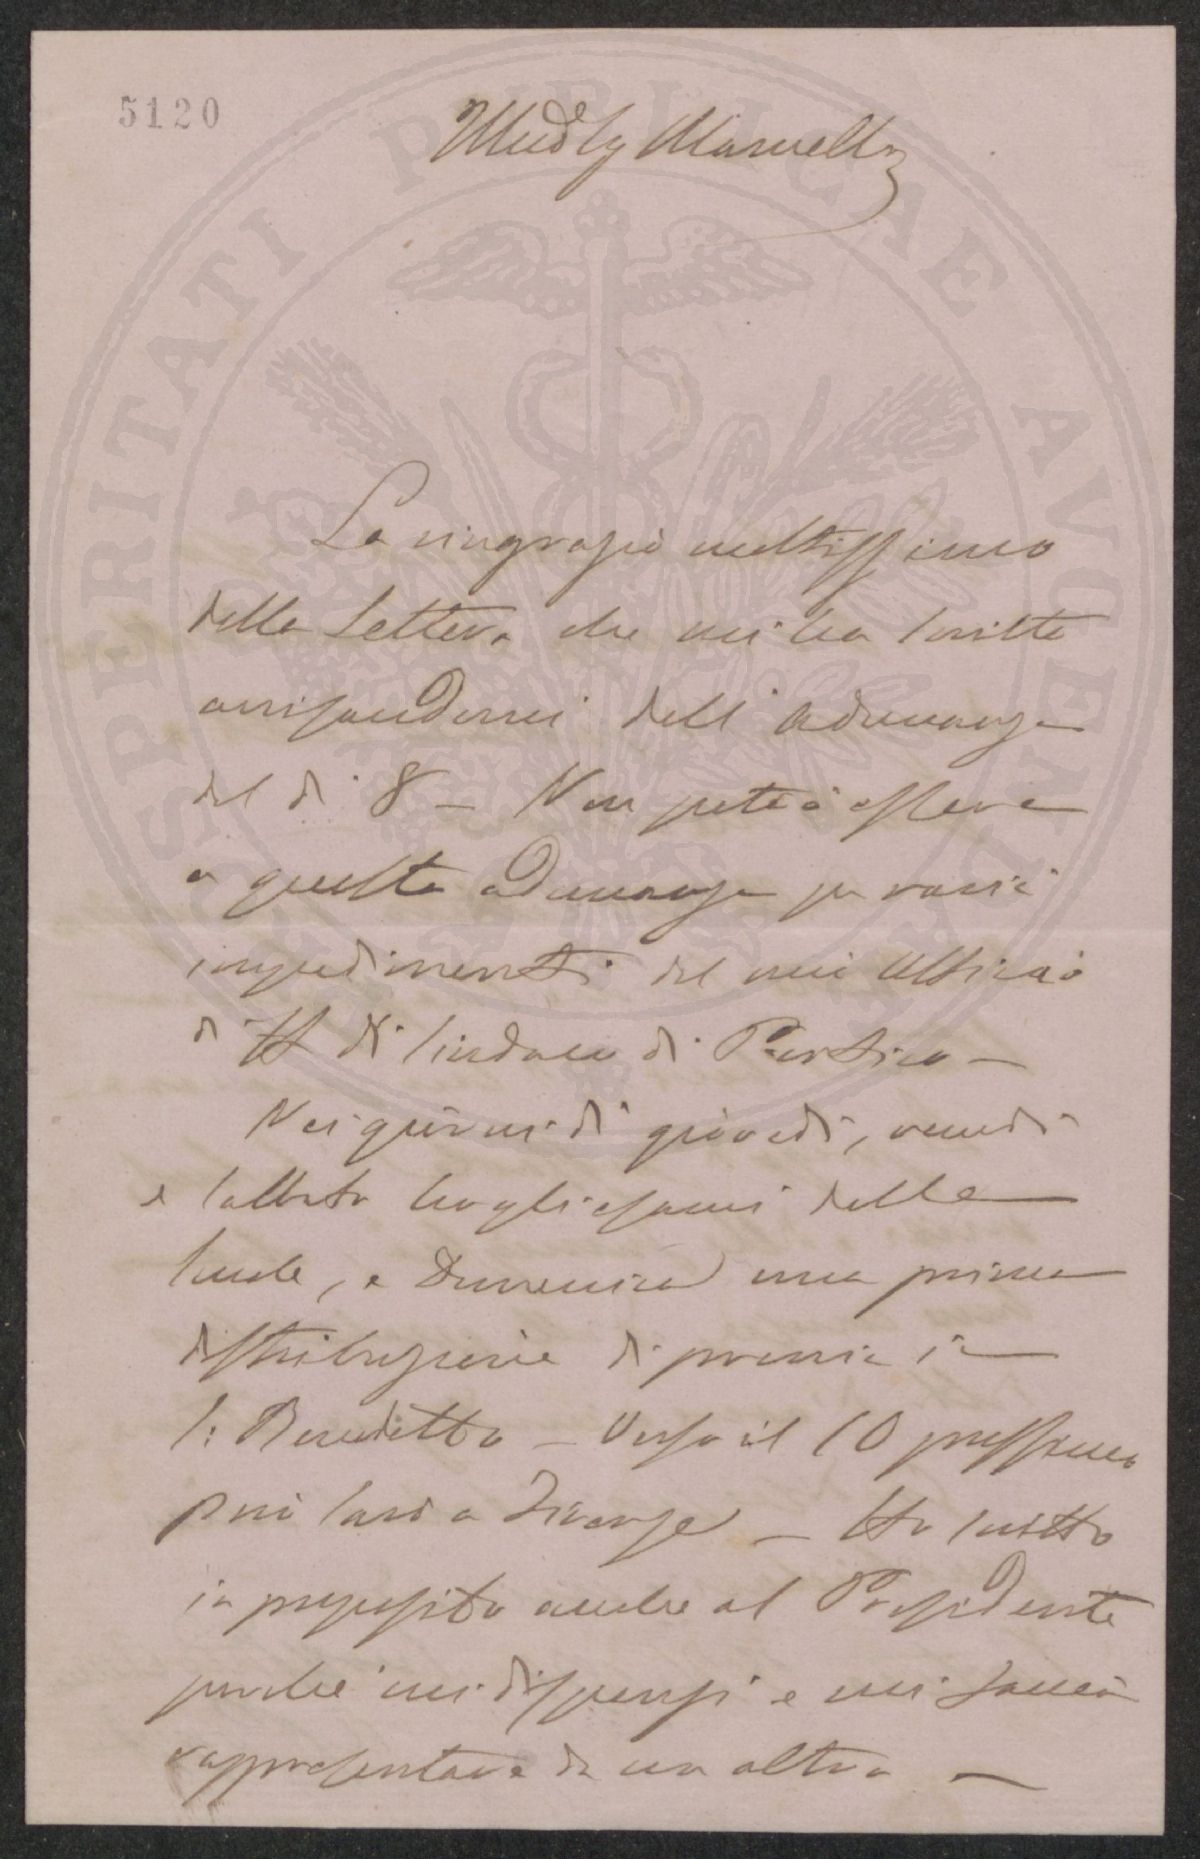 5120
La ringrazio moltissimo
della lettera che mi ha scritto
avvisandomi dell'adunanza
del dì 8 — Non poteo essere
a questa adunanza per varii
impedimenti del mio Uffizio
di ff di Sindaco di Portico —
Nei giorni di giovedi, venerdi
e sabbato ho gli esami delle
scuole, e Domenica una prima
distribuzione di premii in
S: Benedetto — Verso il 10 prossimo
poi sarò a Firenze — Ho scritto
in proposito anche al Presidente
perchè mi dispensi e mi faccia
rappresentare da un altro —
PROSPERITATI PVBLICAE AVGENDAE